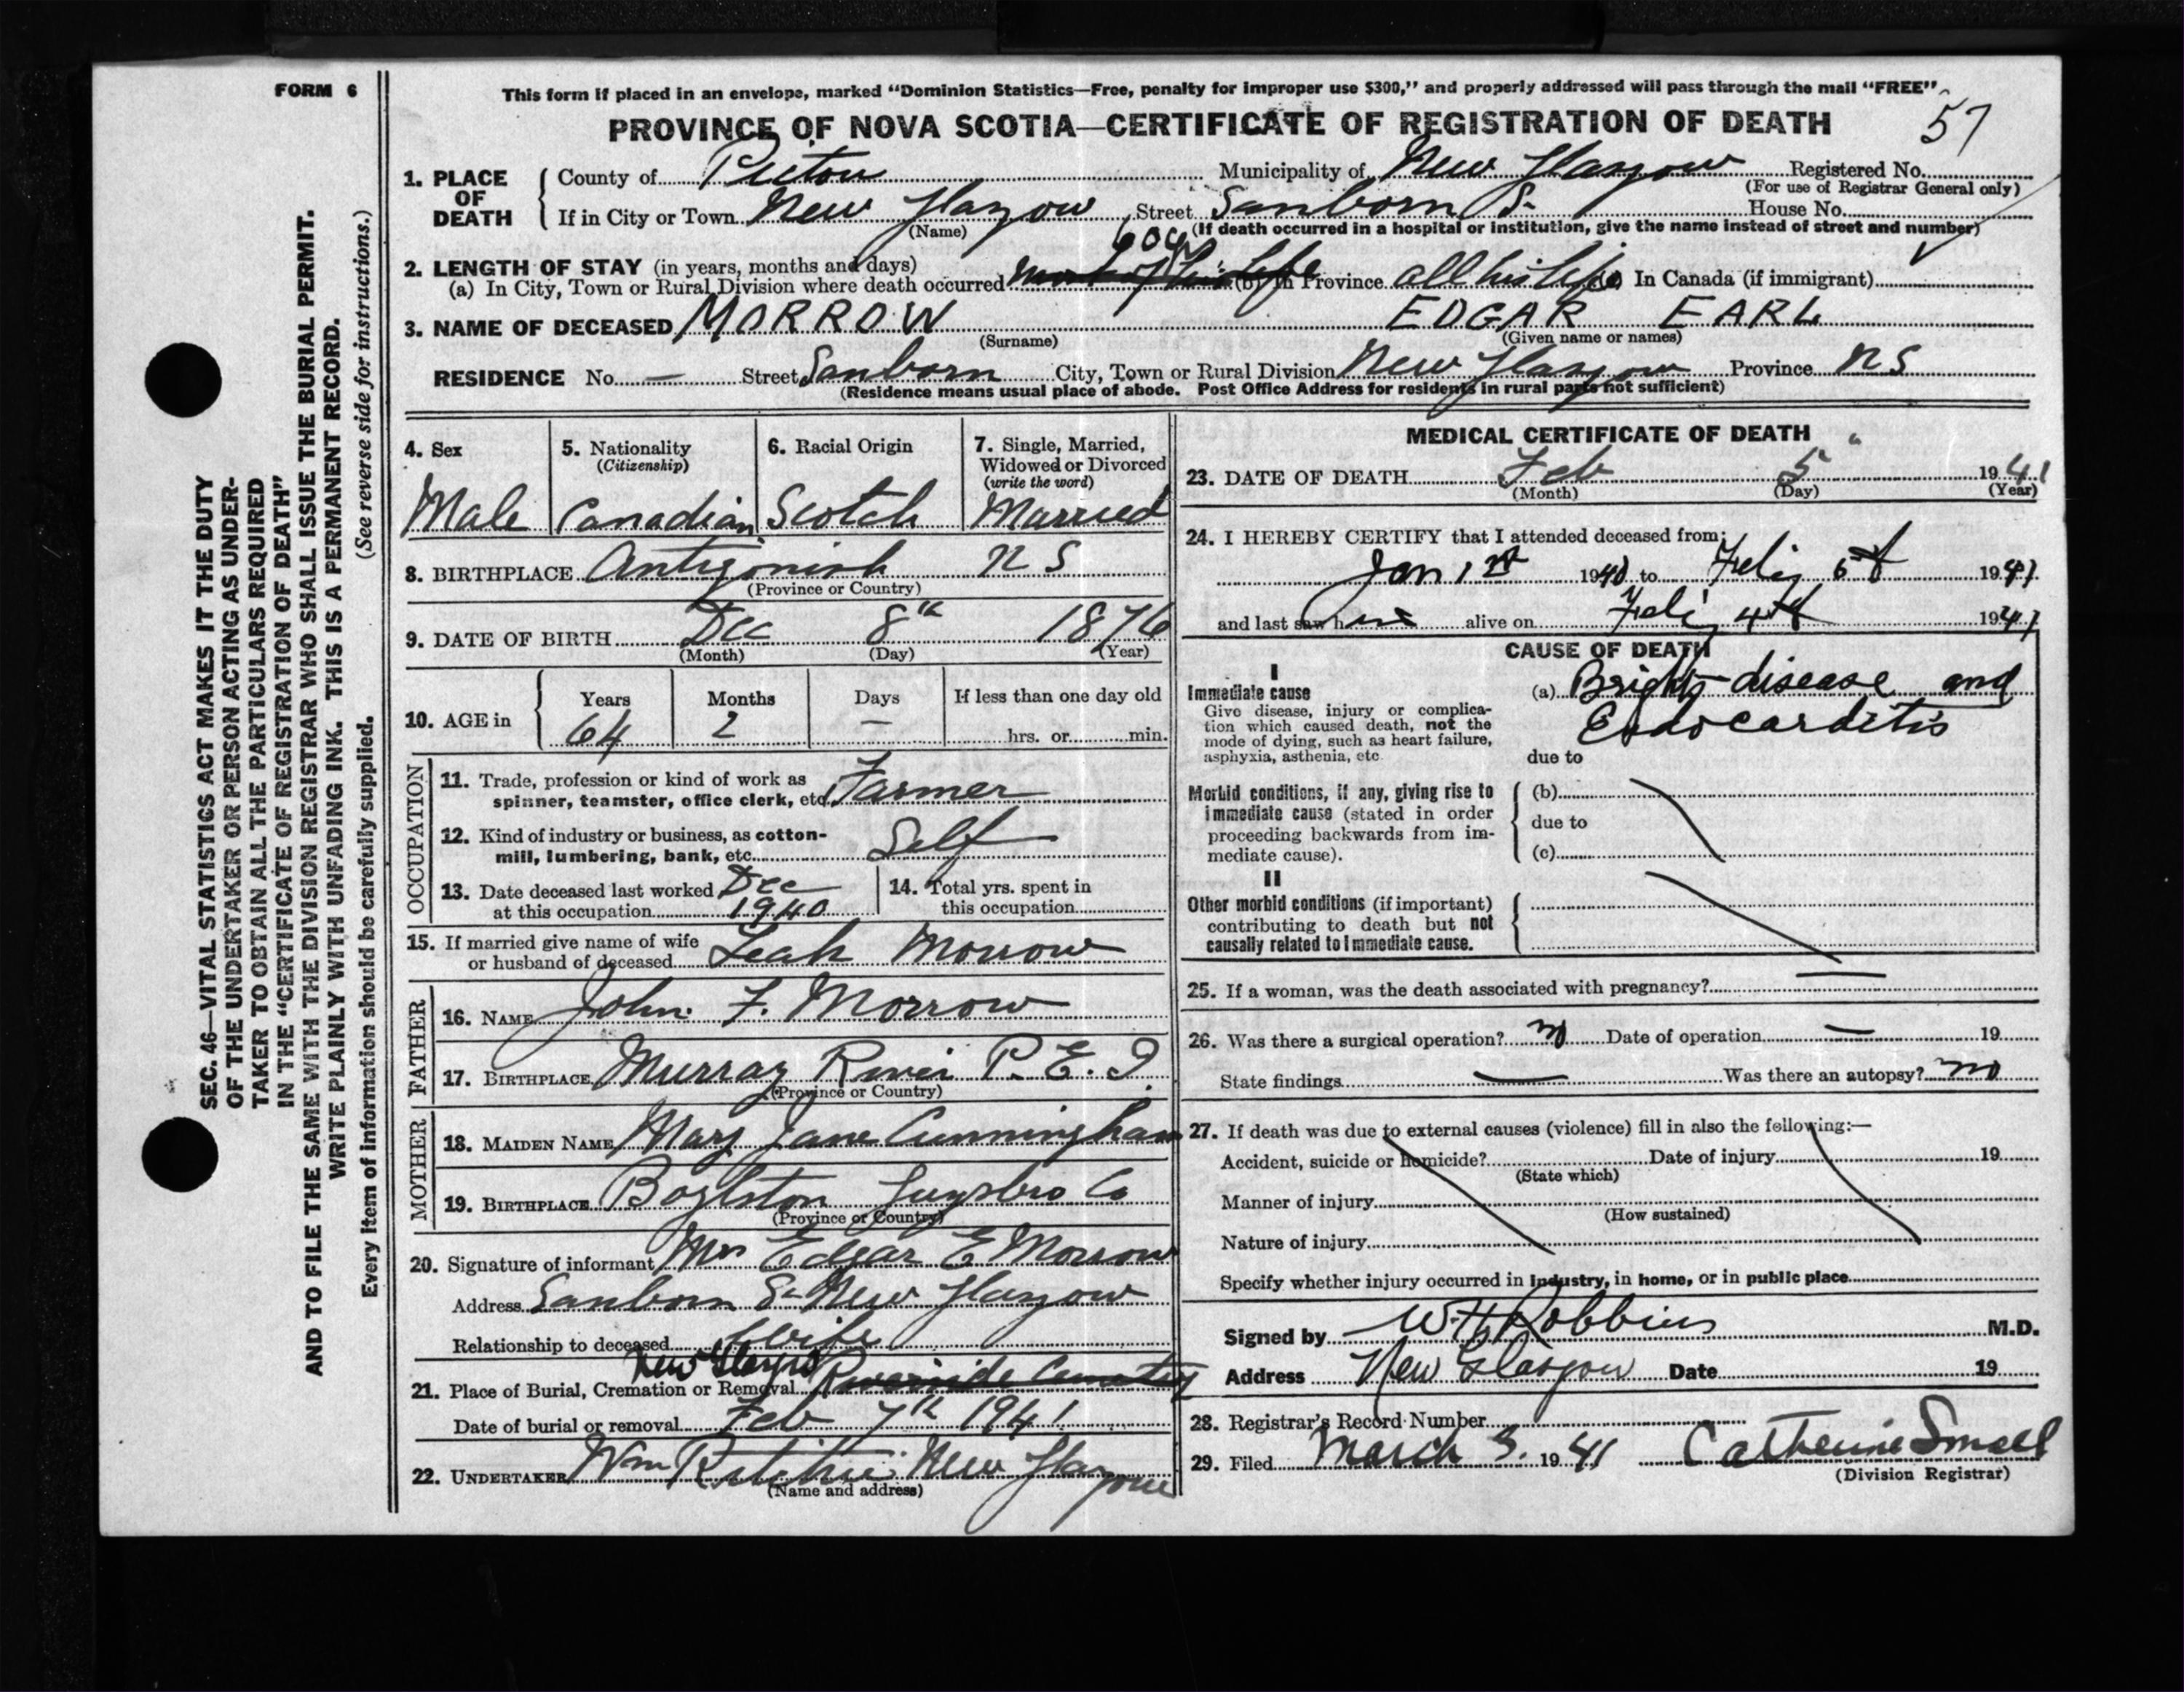 FORM 6
This form if placed in an envelope, marked "Dominion Statistics—Free, penalty for improper use $300," and properly addressed will pass through the mail "FREE"
57
PROVINCE OF NOVA SCOTIA—CERTIFICATE OF REGISTRATION OF DEATH
1. PLACE OF DEATH
County of Pictou Municipality of New Glasgow Registered No.
(For use of Registrar General only)
If in City or Town New Glasgow Street Sanborn St. House No.
(Name) (If death occurred in a hospital or institution, give the name instead of street and number)
2. LENGTH OF STAY (in years, months and days)
(a) In City, Town or Rural Division where death occurred most of his life (b) In Province all his life (c) In Canada (if immigrant)
3. NAME OF DECEASED MORROW EDGAR EARL
(Surname) (Given name or names)
RESIDENCE No. — Street Sanborn City, Town or Rural Division New Glasgow Province NS
(Residence means usual place of abode. Post Office Address for residents in rural parts not sufficient)
4. Sex
Male
5. Nationality
(Citizenship)
Canadian
6. Racial Origin
Scotch
7. Single, Married,
Widowed or Divorced
(write the word)
Married
8. BIRTHPLACE Antigonish NS
(Province or Country)
9. DATE OF BIRTH Dec 8th 1876
(Month) (Day) (Year)
10. AGE in
Years Months Days If less than one day old
64 2 — hrs. or min.
OCCUPATION
11. Trade, profession or kind of work as
spinner, teamster, office clerk, etc. Farmer
12. Kind of industry or business, as cotton-
mill, lumbering, bank, etc. Self
13. Date deceased last worked Dec
at this occupation 1940
14. Total yrs. spent in
this occupation
15. If married give name of wife
or husband of deceased Leah Morrow
FATHER
16. NAME John F. Morrow
17. BIRTHPLACE Murray River P.E.I.
(Province or Country)
MOTHER
18. MAIDEN NAME Mary Jane Cunningham
19. BIRTHPLACE Boylston Guysboro Co
(Province or Country)
20. Signature of informant Mrs Edgar E Morrow
Address Sanborn St New Glasgow
Relationship to deceased Wife
New Glasgow
21. Place of Burial, Cremation or Removal Riverside Cemetery
Date of burial or removal Feb 7th 1941
22. UNDERTAKER Wm Ritchie New Glasgow
(Name and address)
MEDICAL CERTIFICATE OF DEATH
23. DATE OF DEATH Feb 5 1941
(Month) (Day) (Year)
24. I HEREBY CERTIFY that I attended deceased from:
Jan 1st 1940 to 1941
and last saw him alive on 4th 1941
CAUSE OF DEATH
I
Immediate cause
Give disease, injury or complica-
tion which caused death, not the
mode of dying, such as heart failure,
asphyxia, asthenia, etc
(a) Brights disease and
Endocarditis
due to
Morbid conditions, if any, giving rise to
immediate cause (stated in order
proceeding backwards from im-
mediate cause).
(b)
due to
(c)
II
Other morbid conditions (if important)
contributing to death but not
causally related to immediate cause.
25. If a woman, was the death associated with pregnancy?
26. Was there a surgical operation? no Date of operation — 19
State findings — Was there an autopsy? no
27. If death was due to external causes (violence) fill in also the following:—
Accident, suicide or homicide? Date of injury 19
(State which)
Manner of injury
(How sustained)
Nature of injury
Specify whether injury occurred in industry, in home, or in public place
Signed by W H Robbins M.D.
Address New Glasgow Date 19
28. Registrar's Record Number
29. Filed March 3. 1941 Catherine Small
(Division Registrar)
SEC. 46—VITAL STATISTICS ACT MAKES IT THE DUTY
OF THE UNDERTAKER OR PERSON ACTING AS UNDER-
TAKER TO OBTAIN ALL THE PARTICULARS REQUIRED
IN THE "CERTIFICATE OF REGISTRATION OF DEATH"
AND TO FILE THE SAME WITH THE DIVISION REGISTRAR WHO SHALL ISSUE THE BURIAL PERMIT.
WRITE PLAINLY WITH UNFADING INK. THIS IS A PERMANENT RECORD.
Every item of information should be carefully supplied. (See reverse side for instructions.)